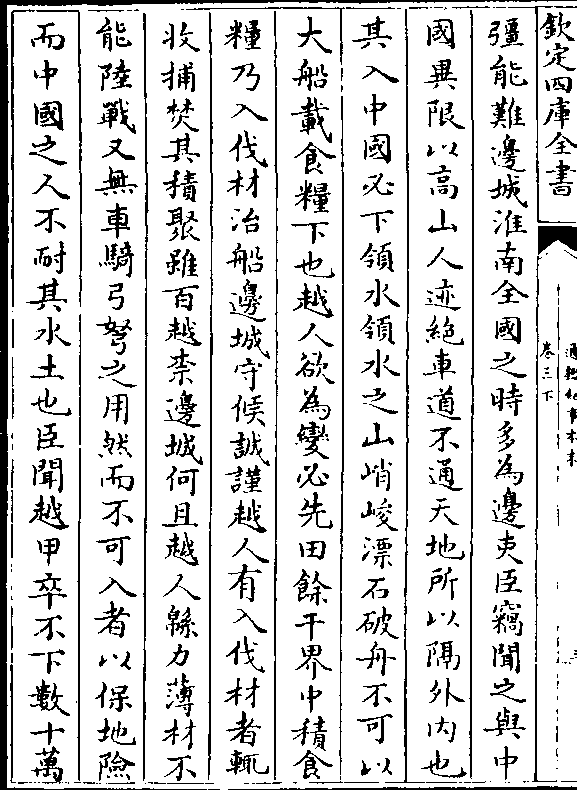 欽定四庫全書
通鑑紀事本末
卷三下
彊能難邊城淮南全國之時多為邊吏臣竊聞之與中
國異限以高山人迹絶車道不通天地所以隔外内也
其入中國必下領水領水之山峭峻漂石破舟不可以
大船載食糧下也越人欲為變必先田餘干界中積食
糧乃入伐材治船邊城守候誠謹越人有入伐材者輒
收捕焚其積聚雖百越柰邊城何且越人緜力薄材不
能陸戰又無車騎弓弩之用然而不可入者以保地險
而中國之人不耐其水土也臣聞越甲卒不下數十萬